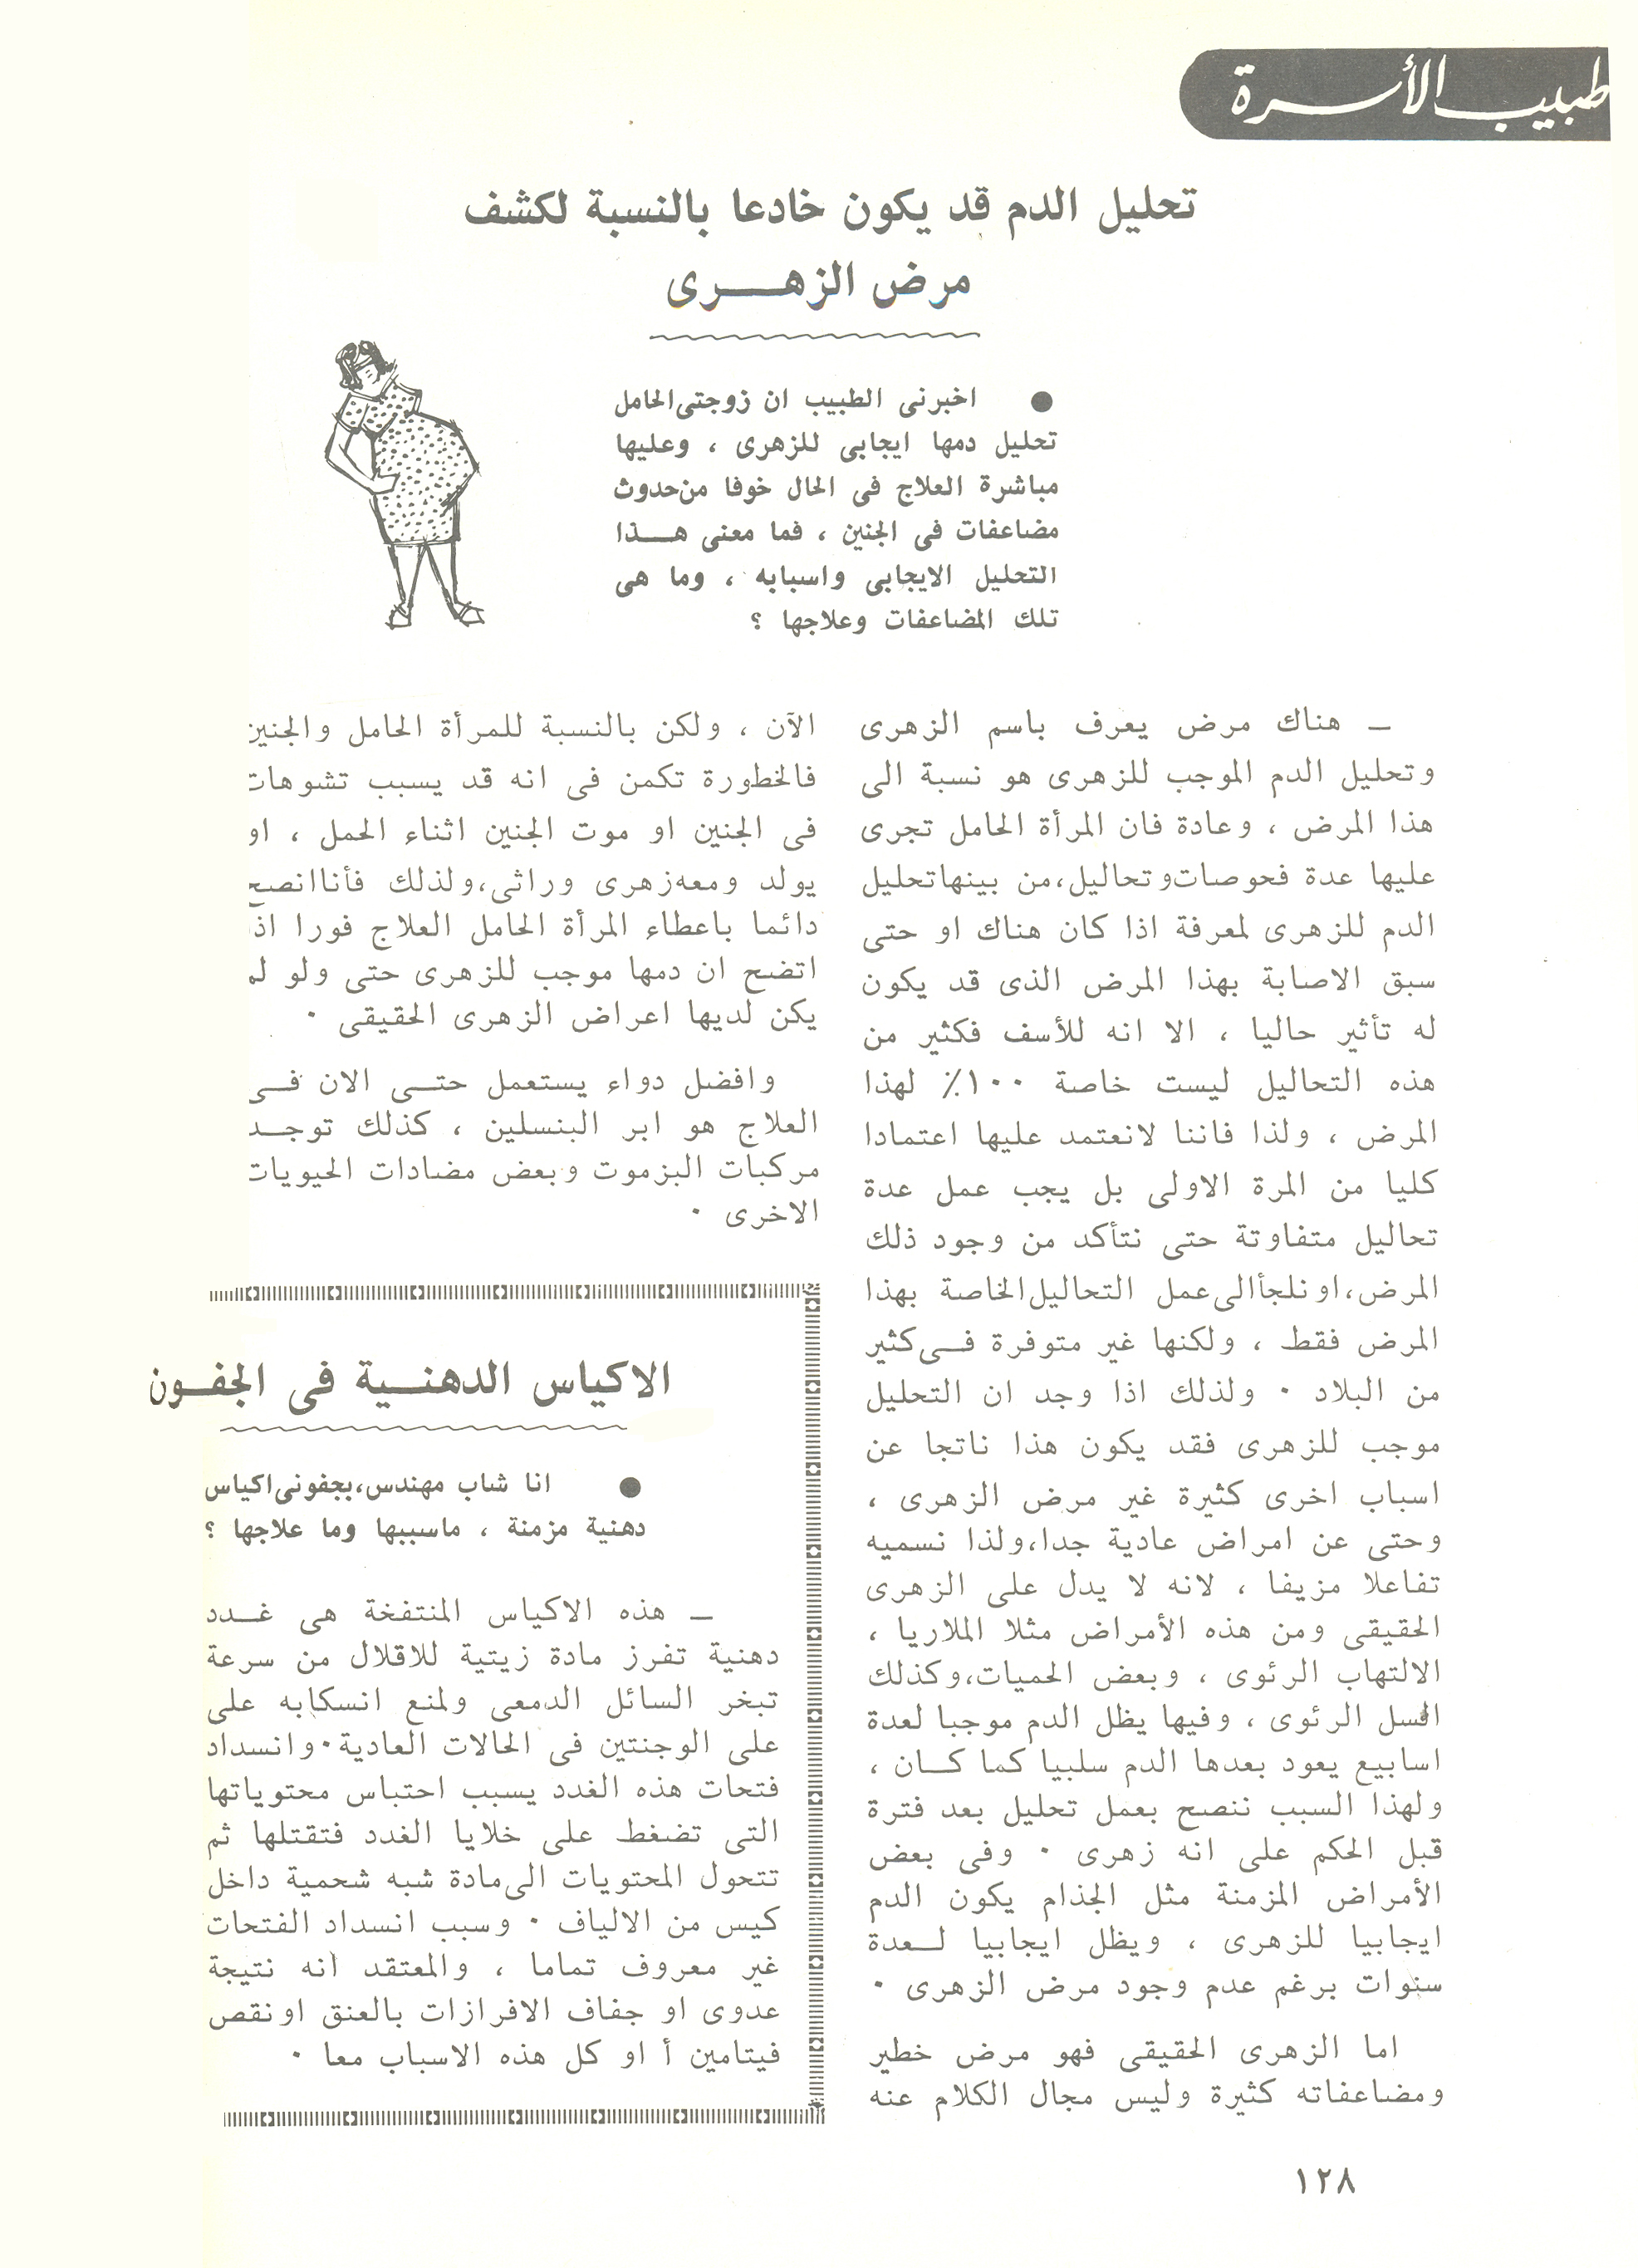 طبيب الأسرة
تحليل الدم قد يكون خادعا بالنسبة لكشف
مرض الزهرى
● اخبرنى الطبيب ان زوجتى الحامل
تحليل دمها ايجابى للزهرى ، وعليها
مباشرة العلاج فى الحال خوفا من حدوث
مضاعفات فى الجنين ، فما معنى هذا
التحليل الايجابى واسبابه ، وما هى
تلك المضاعفات وعلاجها ؟
ــ هناك مرض يعرف باسم الزهرى
وتحليل الدم الموجب للزهرى هو نسبة الى
هذا المرض ، وعادة فان المرأة الحامل تجرى
عليها عدة فحوصات وتحاليل، من بينها تحليل
الدم للزهرى لمعرفة اذا كان هناك او حتى
سبق الاصابة بهذا المرض الذى قد يكون
له تأثير حاليا ، الا انه للأسف فكثير من
هذه التحاليل ليست خاصة ١٠٠٪ لهذا
المرض ، ولذا فاننا لانعتمد عليها اعتمادا
كليا من المرة الاولى بل يجب عمل عدة
تحاليل متفاوتة حتى نتأكد من وجود ذلك
المرض، او نلجأ الى عمل التحاليل الخاصة بهذا
المرض فقط ، ولكنها غير متوفرة فى كثير
من البلاد ٠ ولذلك اذا وجد ان التحليل
موجب للزهرى فقد يكون هذا ناتجا عن
اسباب اخرى كثيرة غير مرض الزهرى ،
وحتى عن امراض عادية جدا، ولذا نسميه
تفاعلا مزيفا ، لانه لا يدل على الزهرى
الحقيقى ومن هذه الأمراض مثلا الملاريا ،
الالتهاب الرئوى ، وبعض الحميات، وكذلك
السل الرئوى ، وفيها يظل الدم موجبا لعدة
اسابيع يعود بعدها الدم سلبيا كما كان ،
ولهذا السبب ننصح بعمل تحليل بعد فترة
قبل الحكم على انه زهرى ٠ وفى بعض
الأمراض المزمنة مثل الجذام يكون الدم
ايجابيا للزهرى ، ويظل ايجابيا لعدة
سنوات برغم عدم وجود مرض الزهرى ٠
اما الزهرى الحقيقى فهو مرض خطير
ومضاعفاته كثيرة وليس مجال الكلام عنه
الآن ، ولكن بالنسبة للمرأة الحامل والجنين
فالخطورة تكمن فى انه قد يسبب تشوهات
فى الجنين او موت الجنين اثناء الحمل ، او
يولد ومعه زهرى وراثى، ولذلك فأنا انصح
دائما باعطاء المرأة الحامل العلاج فورا اذ
اتضح ان دمها موجب للزهرى حتى ولو لم
يكن لديها اعراض الزهرى الحقيقى ٠
وافضل دواء يستعمل حتى الان فى
العلاج هو ابر البنسلين ، كذلك توجد
مركبات البزموت وبعض مضادات الحيويات
الاخرى ٠
الاكياس الدهنية فى الجفون
● انا شاب مهندس، بجفونى اكياس
دهنية مزمنة ، ماسببها وما علاجها ؟
ــ هذه الاكياس المنتفخة هى غدد
دهنية تفرز مادة زيتية للاقلال من سرعة
تبخر السائل الدمعى ولمنع انسكابه على
على الوجنتين فى الحالات العادية٠ وانسداد
فتحات هذه الغدد يسبب احتباس محتوياتها
التى تضغط على خلايا الغدد فتقتلها ثم
تتحول المحتويات الى مادة شبه شحمية داخل
كيس من الالياف ٠ وسبب انسداد الفتحات
غير معروف تماما ، والمعتقد انه نتيجة
عدوى او جفاف الافرازات بالعنق او نقص
فيتامين أ او كل هذه الاسباب معا ٠
١٢٨